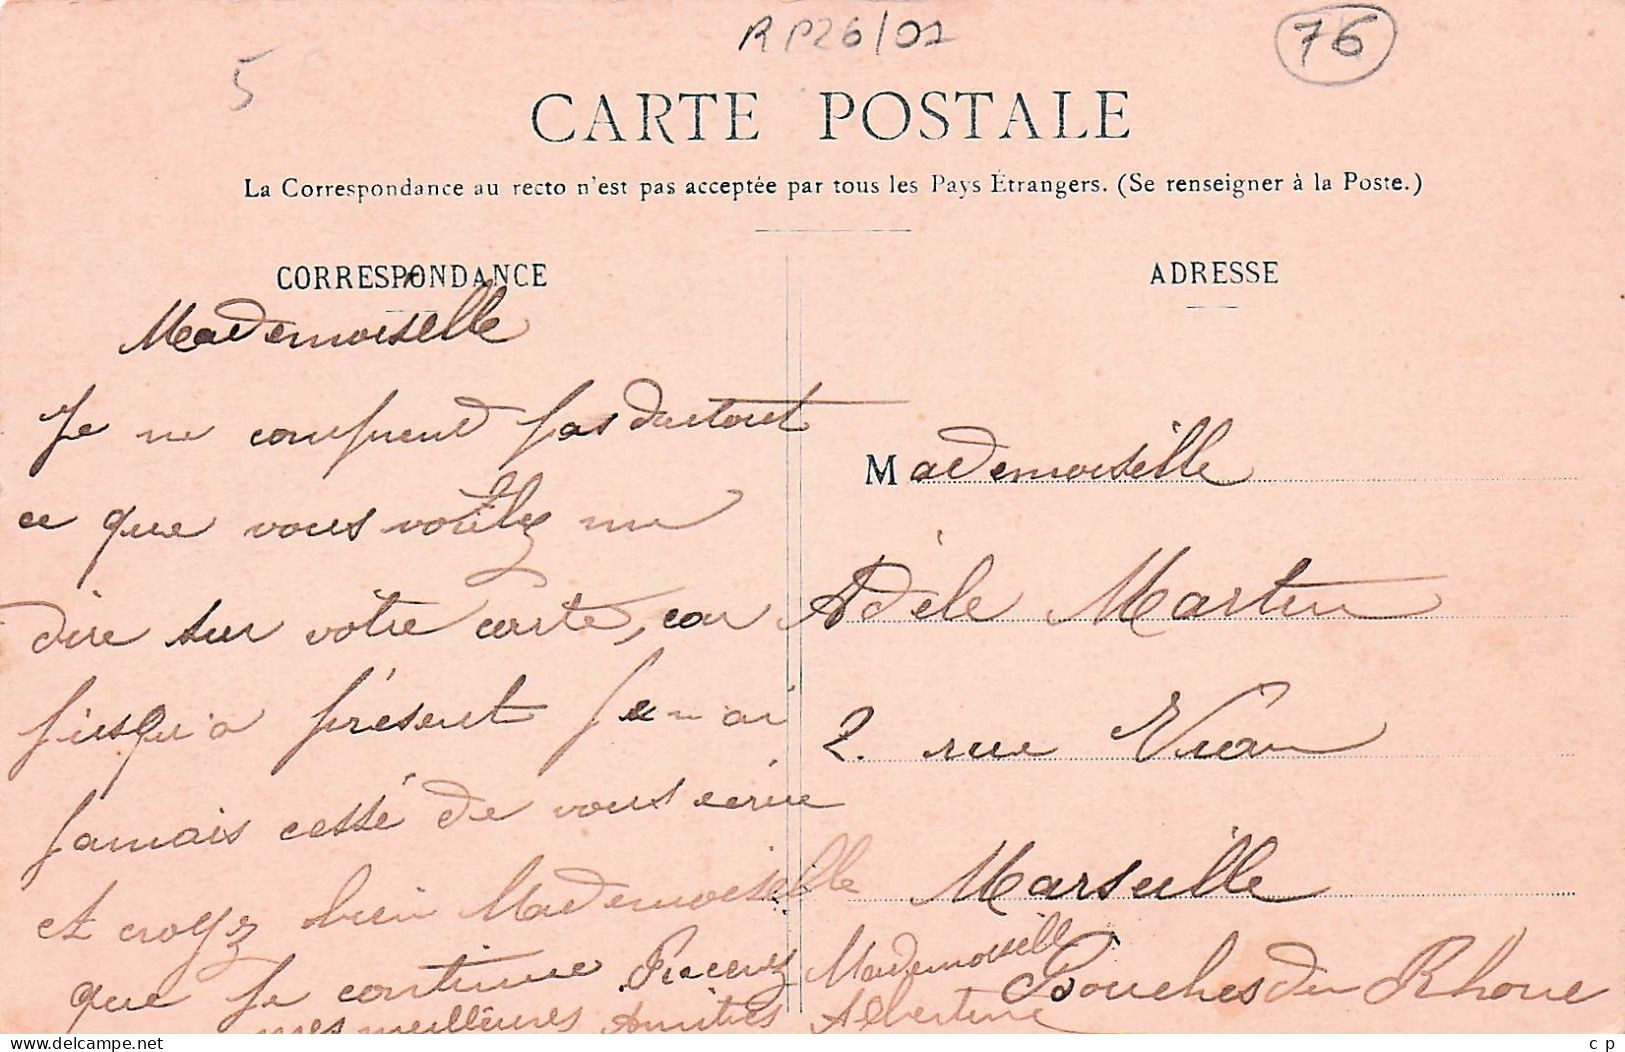 RP26/01
76
5
CARTE POSTALE
La Correspondance au recto n'est pas acceptée par tous les Pays Étrangers. (Se renseigner à la Poste.)
CORRESPONDANCE
Mademoiselle
Je ne comprend pas du tout
ce que vous voulez me
dire sur vôtre carte, car
jusqu'a présent je n ai
jamais cessé de vous écrire
et croyez bien Mademoiselle
que je continue. Recevez Mademoiselle
mes meilleures Amitiés Albertine
ADRESSE
Mademoiselle
Adèle Martin
2. rue Vian
Marseille
Bouches du Rhone